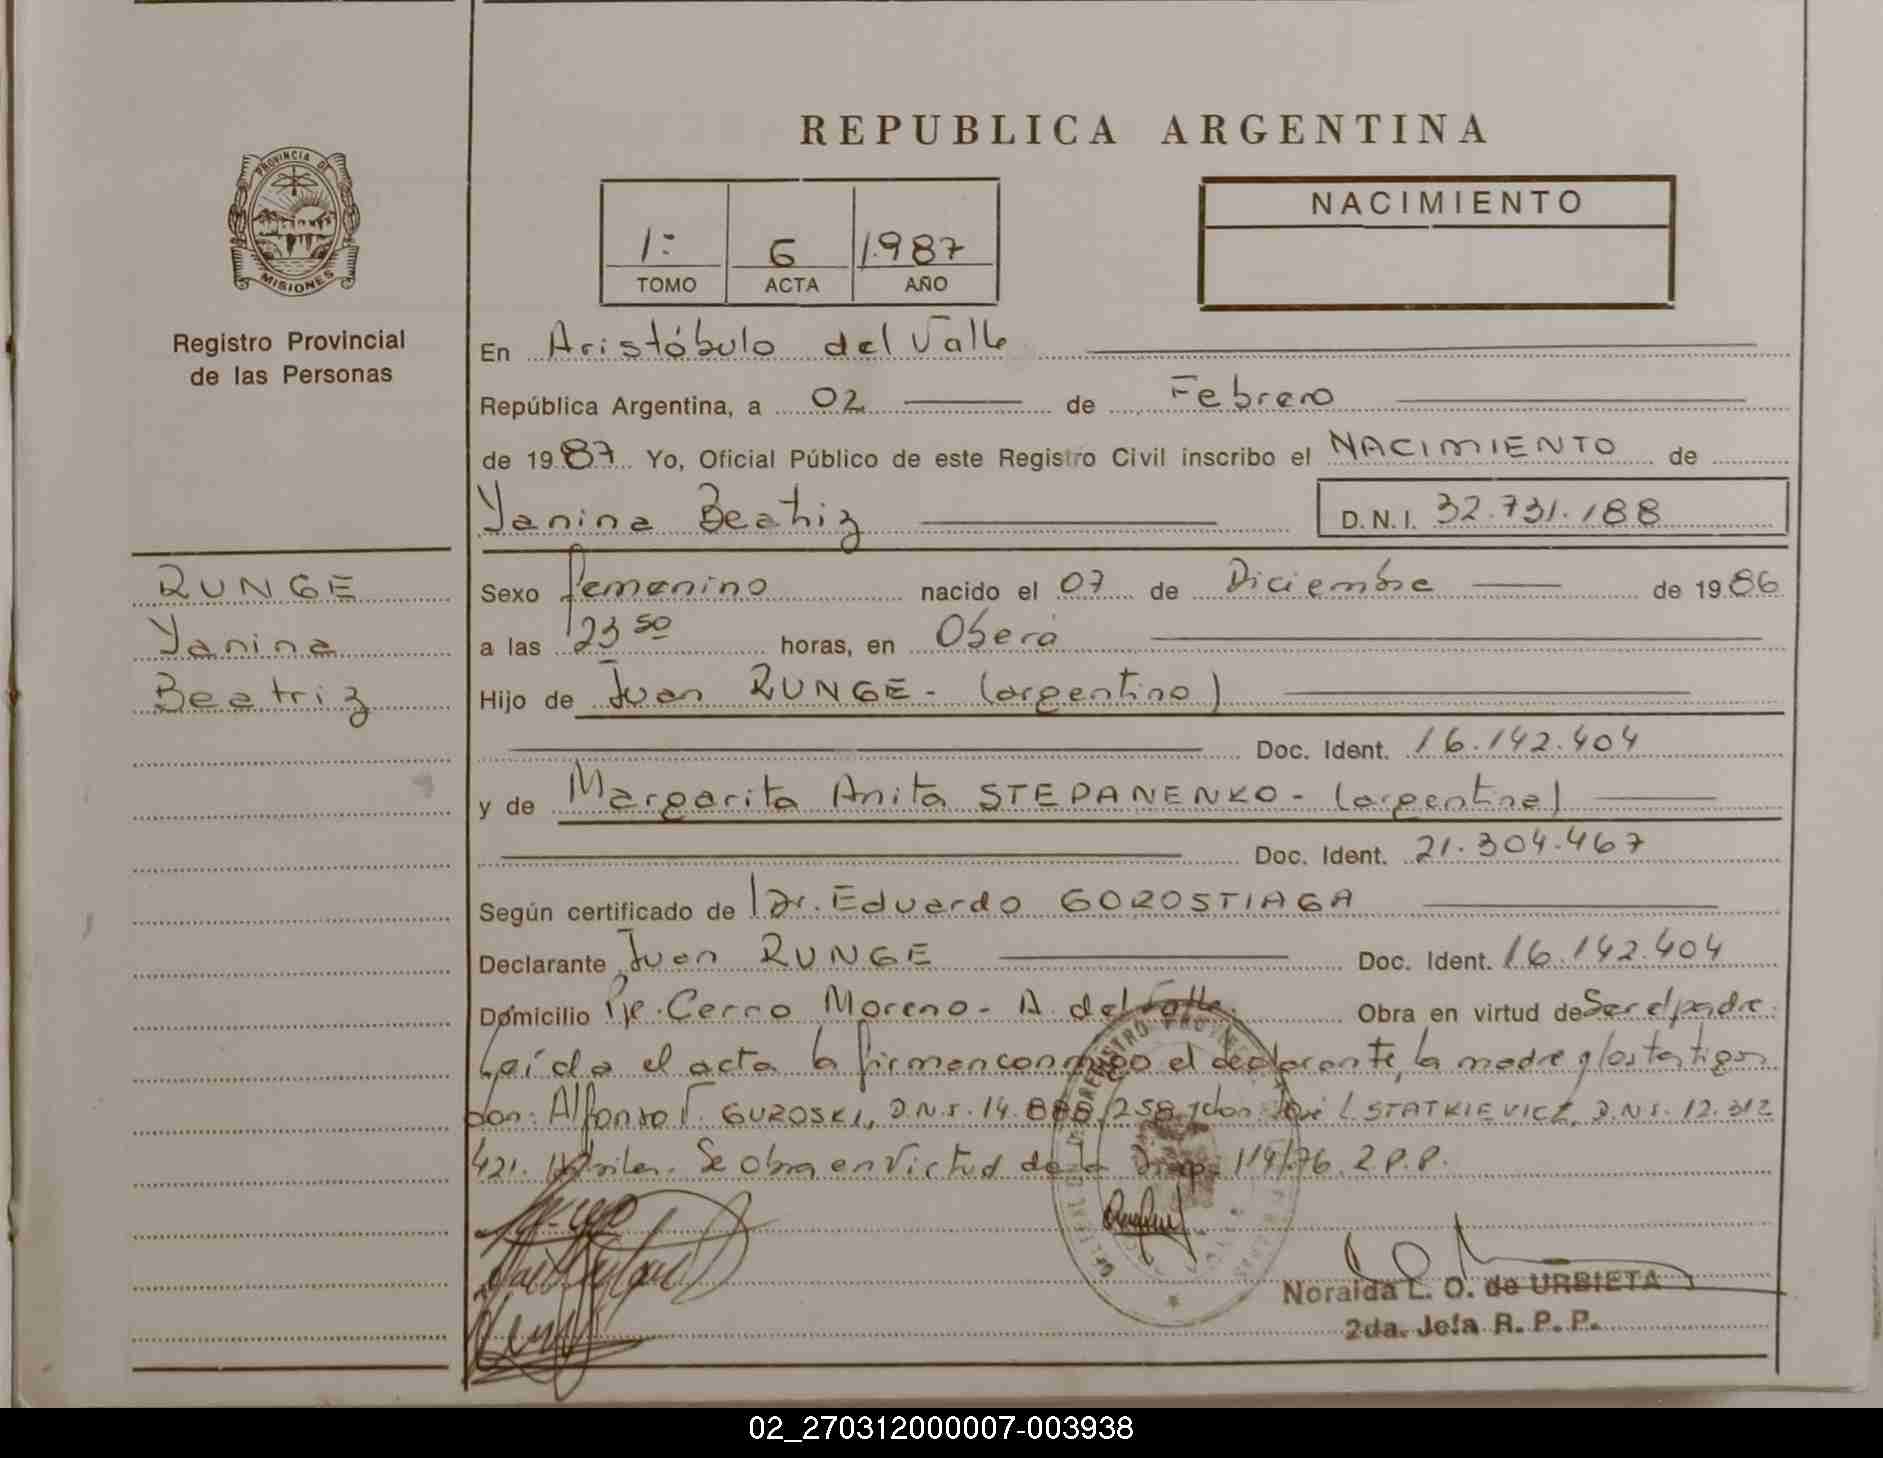 REPUBLICA ARGENTINA
PROVINCIA DE
MISIONES
Registro Provincial
de las Personas
1:
TOMO
6
ACTA
1.987
AÑO
NACIMIENTO
En Aristóbulo del Valle
República Argentina, a 02 de Febrero
de 1987 Yo, Oficial Público de este Registro Civil inscribo el NACIMIENTO de
Yanina Beatriz D.N.I. 32.731.188
RUNGE
Yanina
Beatriz
Sexo femenino nacido el 07 de Diciembre de 1986
a las 23 50 horas, en Oberá
Hijo de Juan RUNGE - (argentino)
Doc. Ident. 16.142.404
y de Margarita Anita STEPANENKO - (argentina)
Doc. Ident. 21.304.467
Según certificado de Dr. Eduardo GOROSTIAGA
Declarante Juan RUNGE Doc. Ident. 16.142.404
Domicilio Pje. Cerro Moreno - A. del Valle. Obra en virtud de Ser el padre.
Leída el acta la firman conmigo el declarante, la madre y los testigos
don: Alfonso GUROSKI, D.N.I. 14.888.258 y don José L. STATKIEVICZ, D.N.I. 12.312
421. Se obra en virtud de la Disp. 114/76. R.P.P.
Noraida L. O. de URBIETA
2da. Jefa R. P. P.
02_270312000007-003938